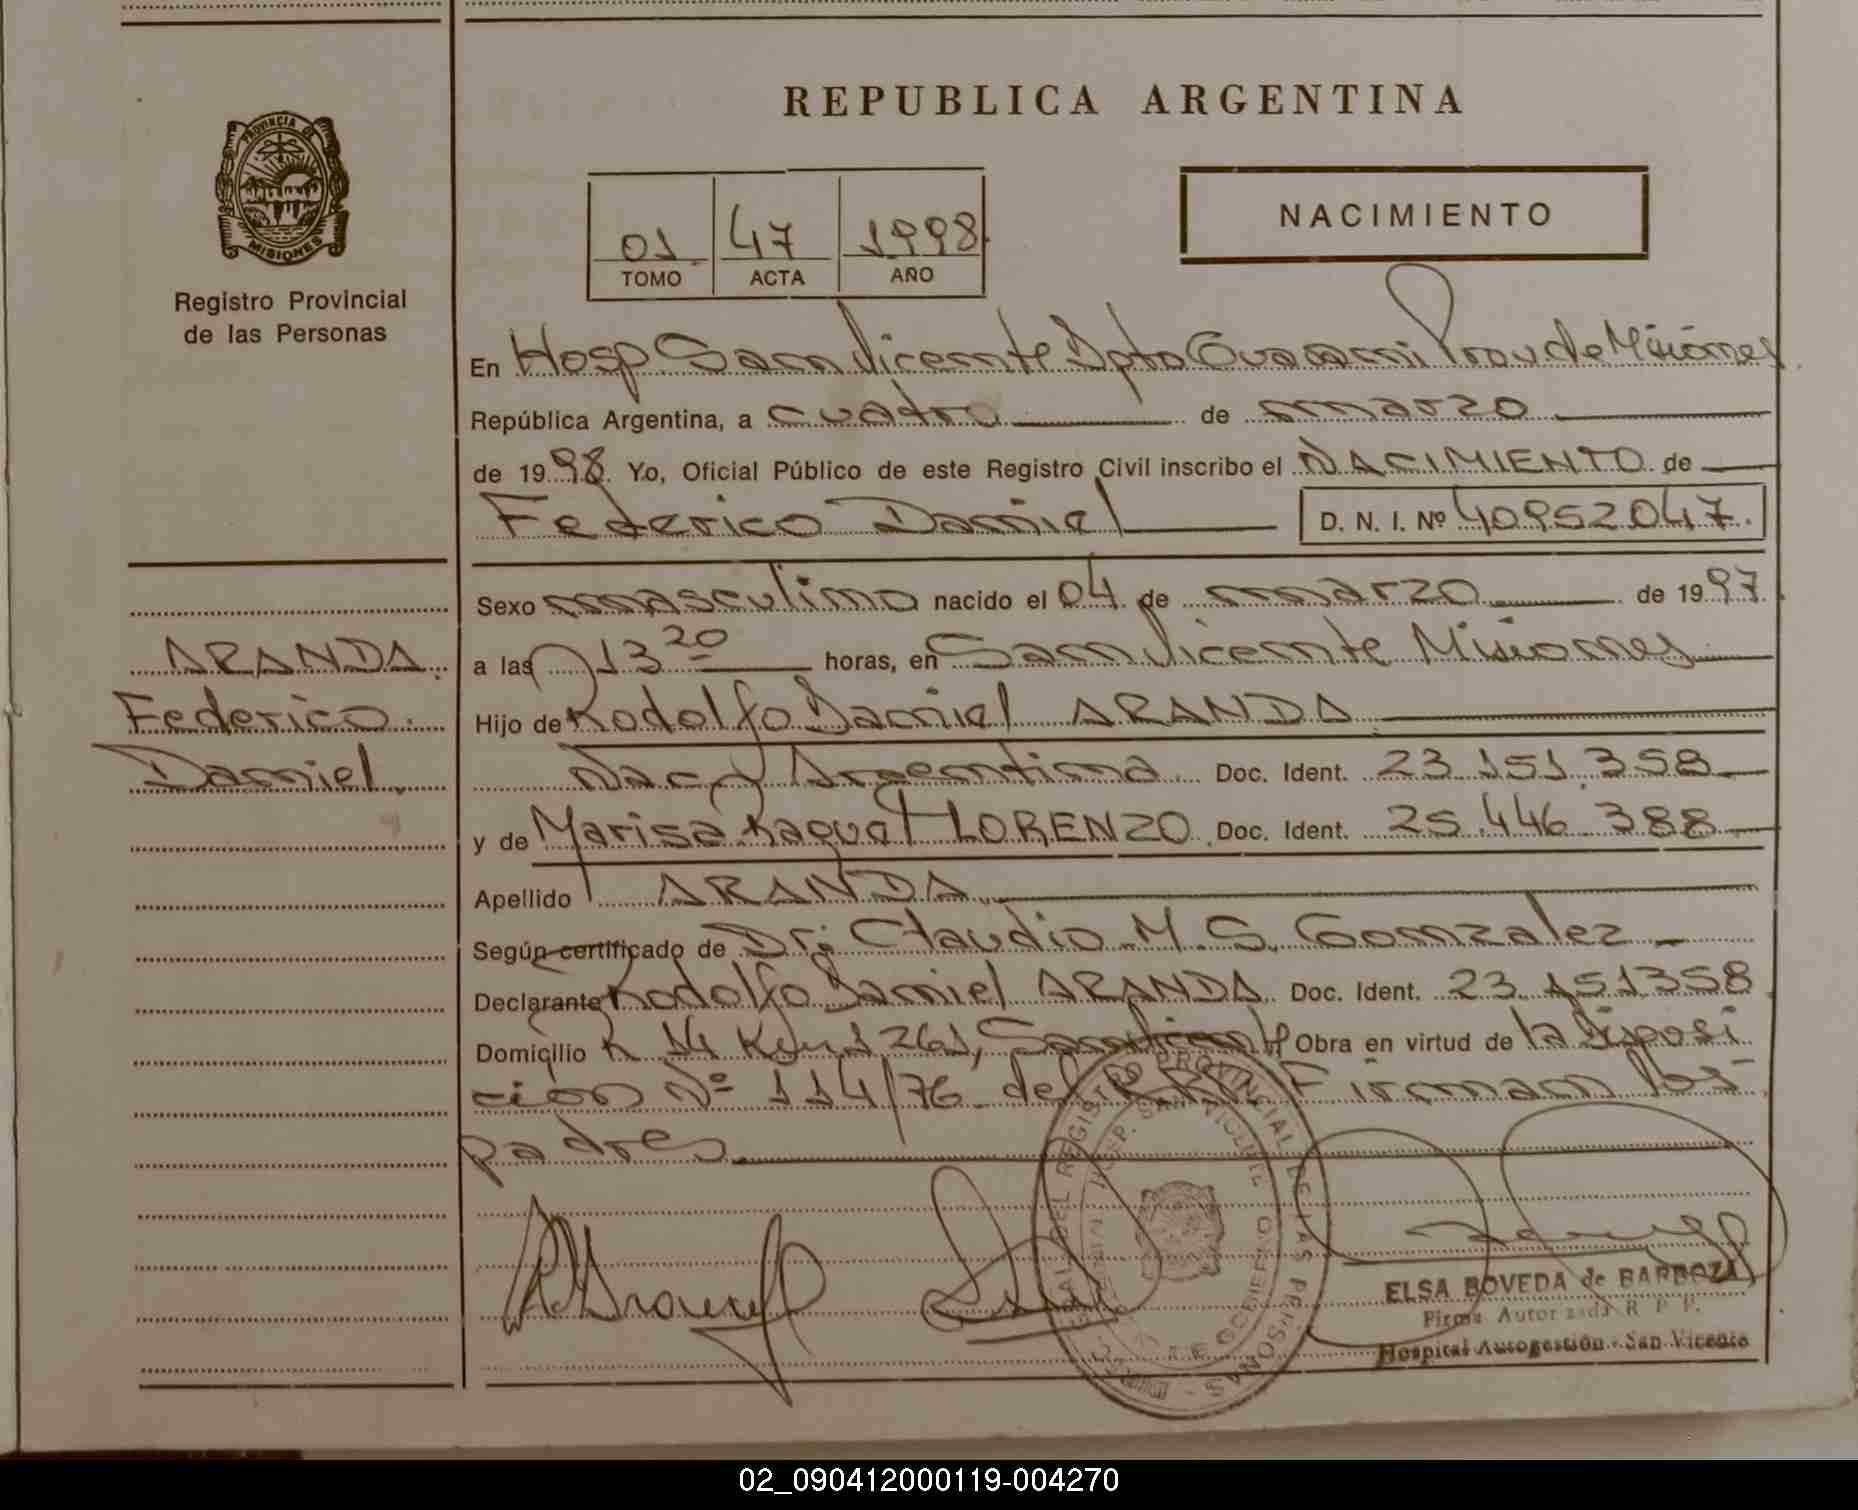 REPUBLICA ARGENTINA
PROVINCIA DE MISIONES
Registro Provincial
de las Personas
01 47 1998
TOMO ACTA AÑO
NACIMIENTO
En Hosp San Vicente Dpto Guarani Prov de Misiones
República Argentina, a cuatro de marzo
de 1998. Yo, Oficial Público de este Registro Civil inscribo el NACIMIENTO de
Federico Daniel D. N. I. Nº 40952047.
Sexo masculino nacido el 04 de marzo de 1997
ARANDA
Federico
Daniel
a las 13 20 horas, en San Vicente Misiones
Hijo de Rodolfo Daniel ARANDA
Nac Argentina Doc. Ident. 23.151.358
y de Marisa Raquel LORENZO Doc. Ident. 25.446.388
Apellido ARANDA
Según certificado de Dr. Claudio M. S. Gonzalez
Declarante Rodolfo Daniel ARANDA Doc. Ident. 23.151358
Domicilio R 14 Km 1261, San Vicente Obra en virtud de la Disposi
ción Nº 114/76 del Firman los
padres
REGISTRO PROVINCIAL DE LAS PERSONAS
HOSP. SAN VICENTE
ELSA BOVEDA de BARBOZA
Firma Autorizada R. P. P.
Hospital Autogestión - San Vicente
02_090412000119-004270